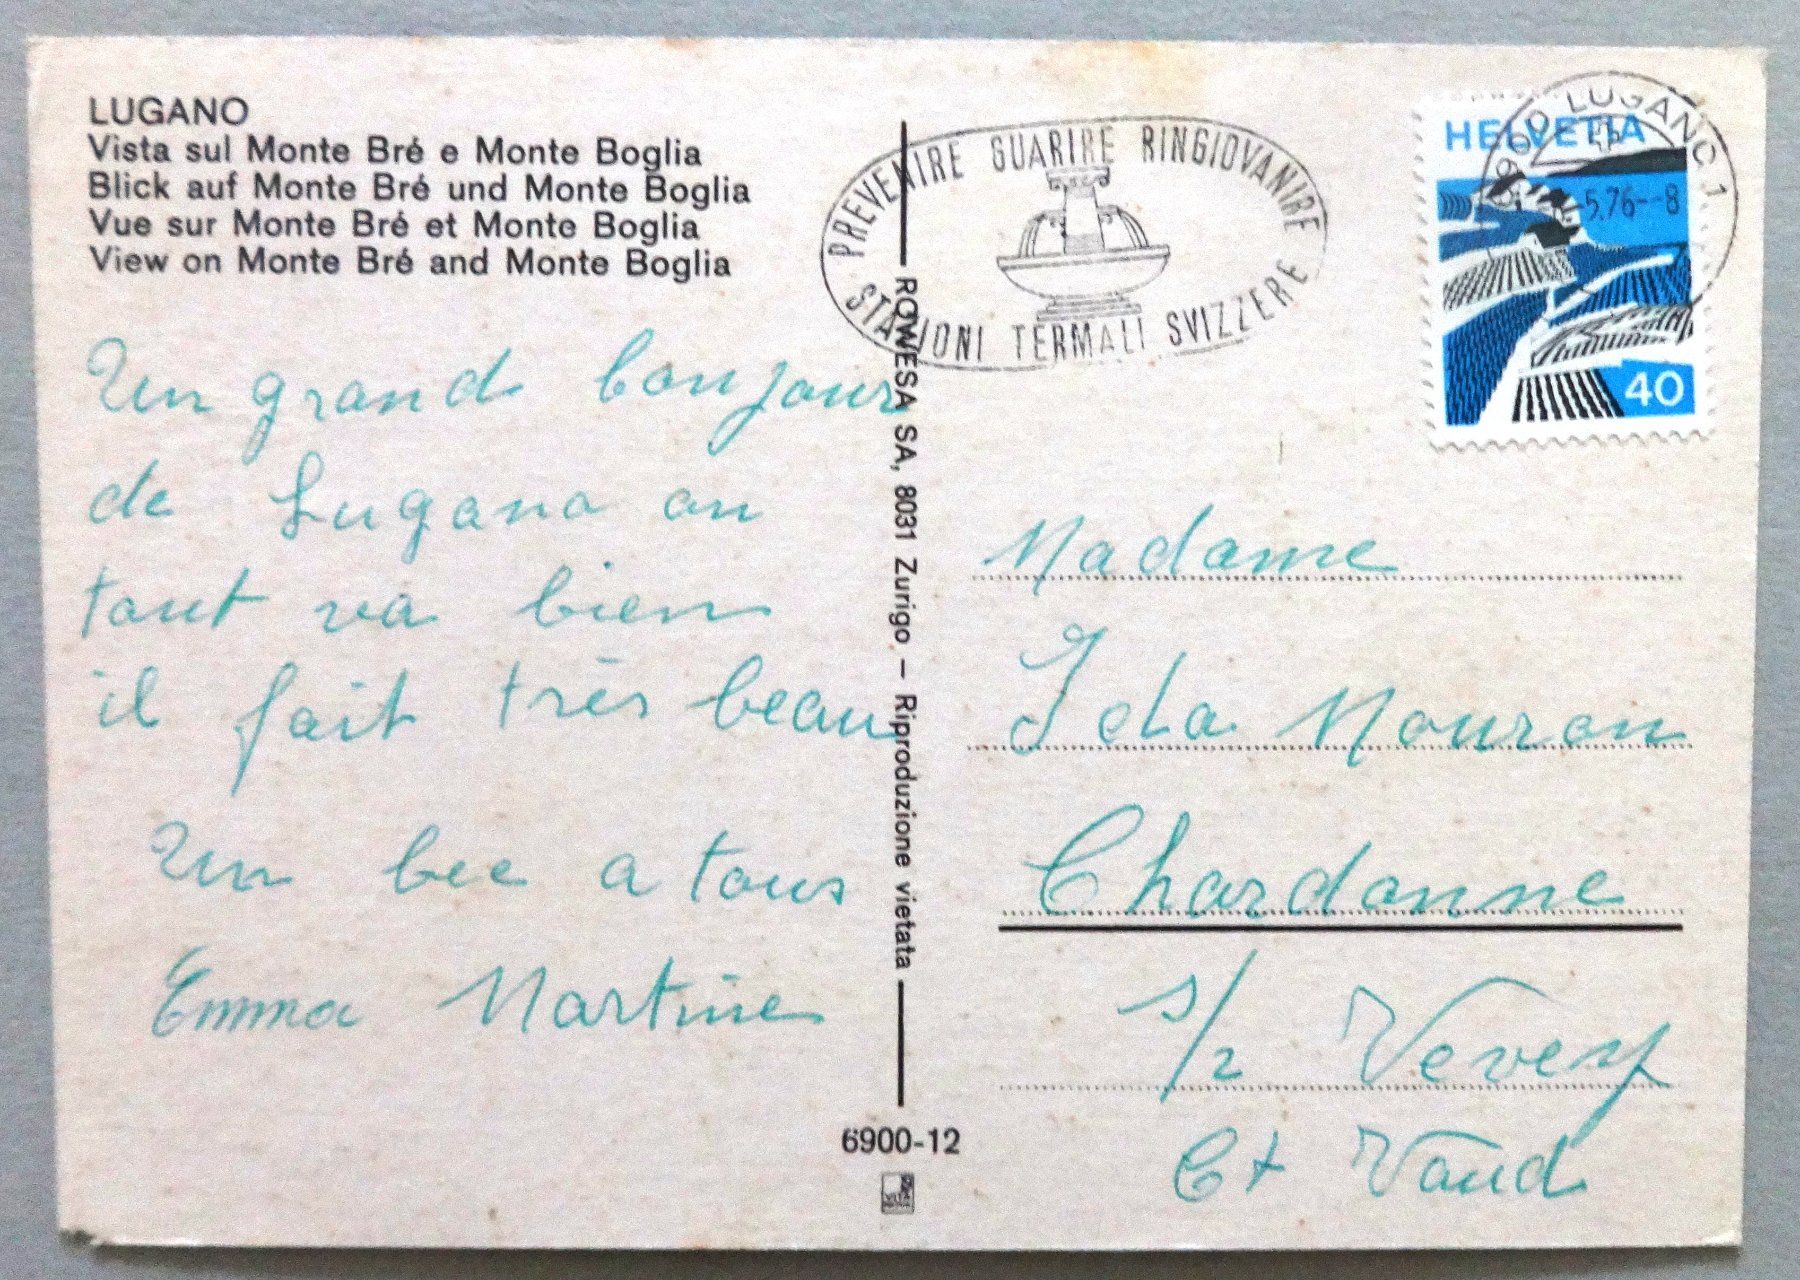 LUGANO
Vista sul Monte Bré e Monte Boglia
Blick auf Monte Bré und Monte Boglia
Vue sur Monte Bré et Monte Boglia
View on Monte Bré and Monte Boglia
Un grand bonjour
de Lugano ou
tout va bien
il fait très beau
Un bec a tous
Emma Martine
ROWESA SA, 8031 Zurigo – Riproduzione vietata
6900-12
PREVENIRE GUARIRE RINGIOVANIRE
STAZIONI TERMALI SVIZZERE
HELVETIA
40
LUGANO 1
5.76--8
Madame
Ida Mouron
Chardonne
s/ Vevey
Ct Vaud